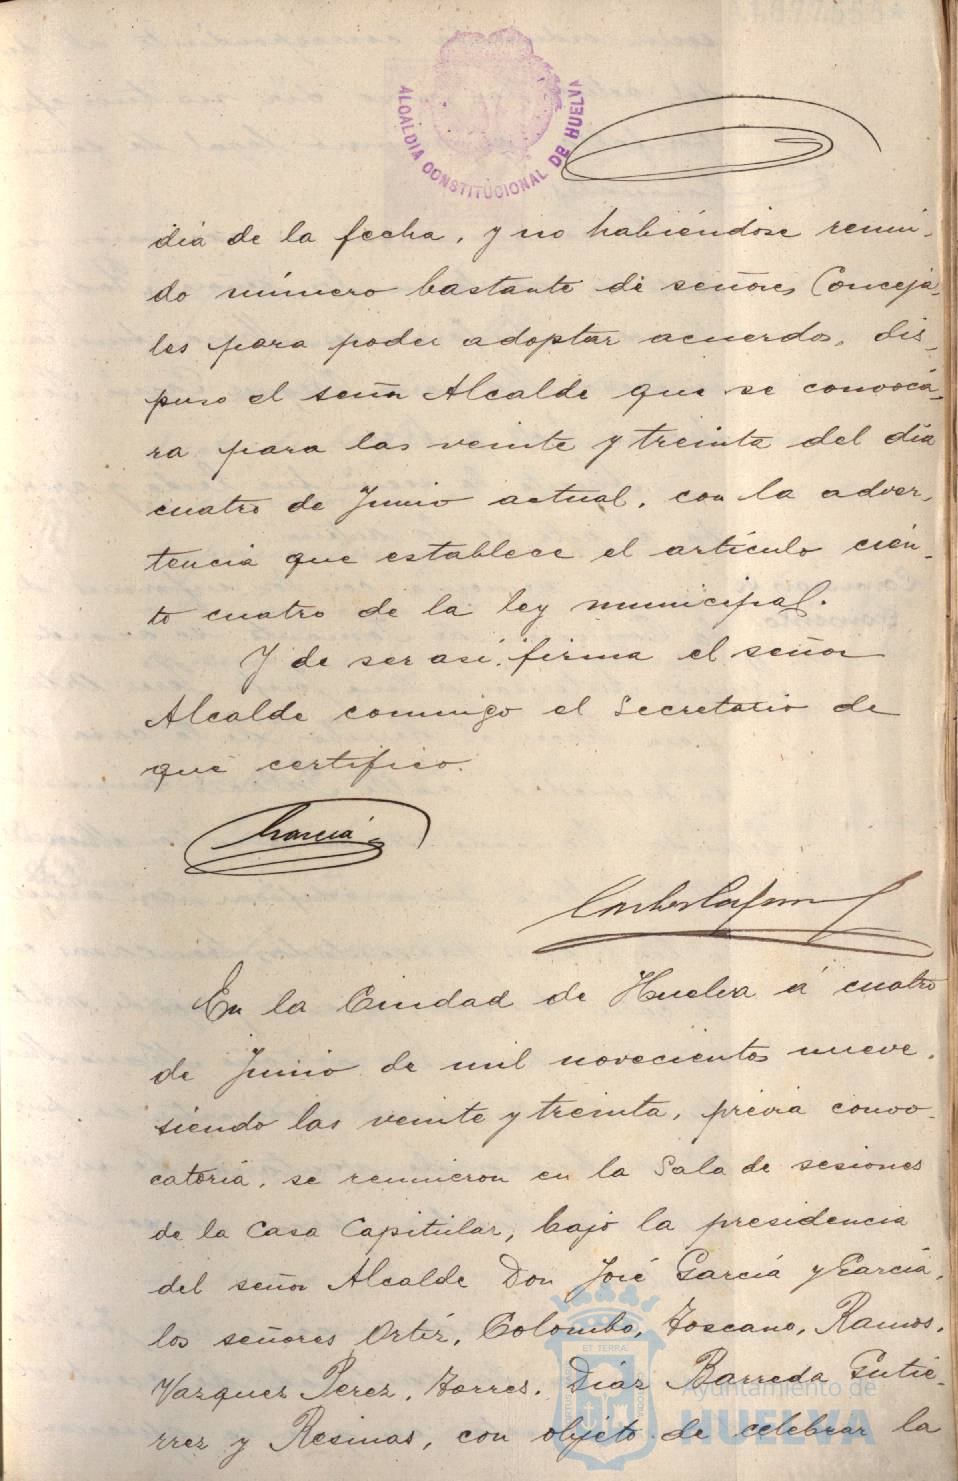 ALCALDIA CONSTITUCIONAL DE HUELVA
dia de la fecha, y no habiéndose reuni-
do número bastante de señores Conceja-
les para poder adoptar acuerdos, dis-
puso el señor Alcalde que se convocá-
ra para las veinte y treinta del dia
cuatro de Junio actual, con la adver-
tencia que establece el artículo cien-
to cuatro de la ley municipal.
Y de ser asi, firma el señor
Alcalde conmigo el Secretario de
que certifico.
Garcia
En la Ciudad de Huelva á cuatro
de Junio de mil novecientos nueve,
siendo las veinte y treinta, prévia convo-
catoria, se reunieron en la Sala de sesiones
de la Casa Capitular, bajo la presidencia
del señor Alcalde Don José García y García,
los señores Ortiz, Colombo, Toscano, Ramos,
Vazquez Perez, Torres, Diaz Barreda Gutié-
rrez y Resinas, con objeto de celebrar la
ET TERRA
Ayuntamiento de
HUELVA